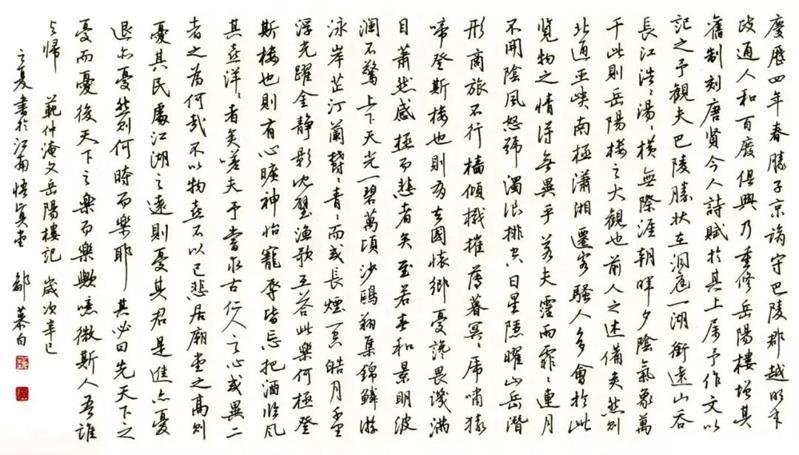 慶曆四年春滕子京謫守巴陵郡越明年
政通人和百廢俱興乃重修岳陽樓增其
舊制刻唐賢今人詩賦於其上屬予作文以
記之予觀夫巴陵勝狀在洞庭一湖銜遠山吞
長江浩〻湯〻橫無際涯朝暉夕陰氣象萬
千此則岳陽樓之大觀也前人之述備矣然則
北通巫峽南極瀟湘遷客騷人多會於此
覽物之情得無異乎若夫霪雨霏〻連月
不開陰風怒號濁浪排空日星隱曜山岳潛
形商旅不行檣傾楫摧薄暮冥〻虎嘯猿
啼登斯樓也則有去國懷鄉憂讒畏譏滿
目蕭然感極而悲者矣至若春和景明波
瀾不驚上下天光一碧萬頃沙鷗翔集錦鱗游
泳岸芷汀蘭鬱〻青〻而或長煙一空皓月千里
浮光躍金靜影沈璧漁歌互答此樂何極登
斯樓也則有心曠神怡寵辱皆忘把酒臨風
其喜洋〻者矣嗟夫予嘗求古仁人之心或異二
者之為何哉不以物喜不以己悲居廟堂之高則
憂其民處江湖之遠則憂其君是進亦憂
退亦憂然則何時而樂耶其必曰先天下之
憂而憂後天下之樂而樂歟噫微斯人吾誰
與歸 范仲淹文岳陽樓記 歲次辛巳
之夏書於江南 鄒慕白